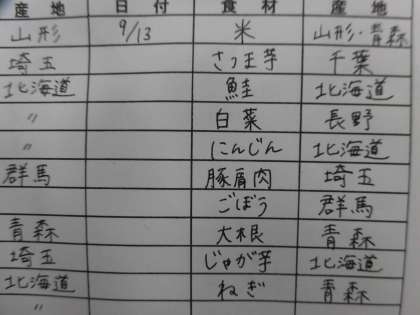 産地 日付 食材 産地
山形 9/13 米 山形・青森
埼玉 さつま芋 千葉
北海道 鮭 北海道
〃 白菜 長野
〃 にんじん 北海道
群馬 豚肩肉 埼玉
ごぼう 群馬
青森 大根 青森
埼玉 じゃが芋 北海道
北海道 ねぎ 青森
〃